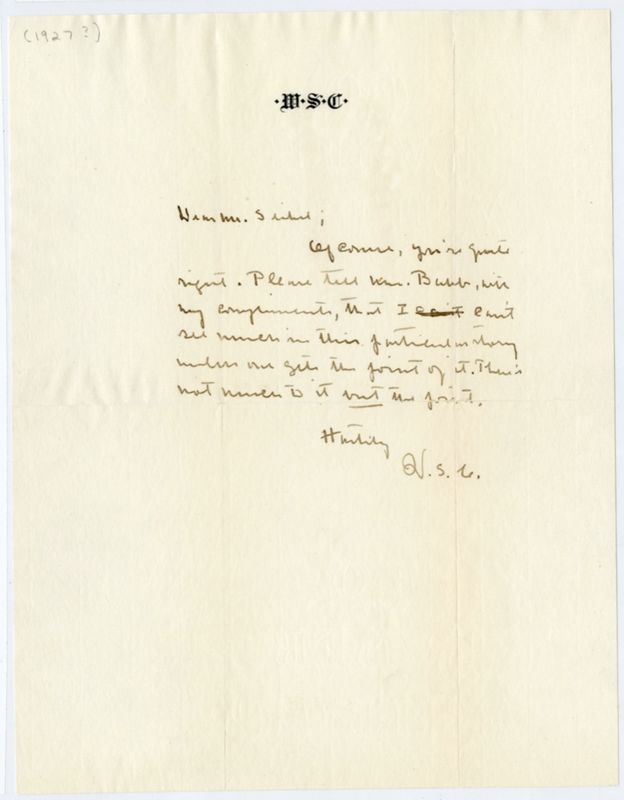 (1927?)
·W·S·C·
Dear Mr. Seibel;
Of course, you're quite
right. Please tell Mr. Bubb, with
my compliments, that I can't can't
see much in this particular story
unless one gets the point of it. There's
not much to it but the point.
Hastily
W. S. C.